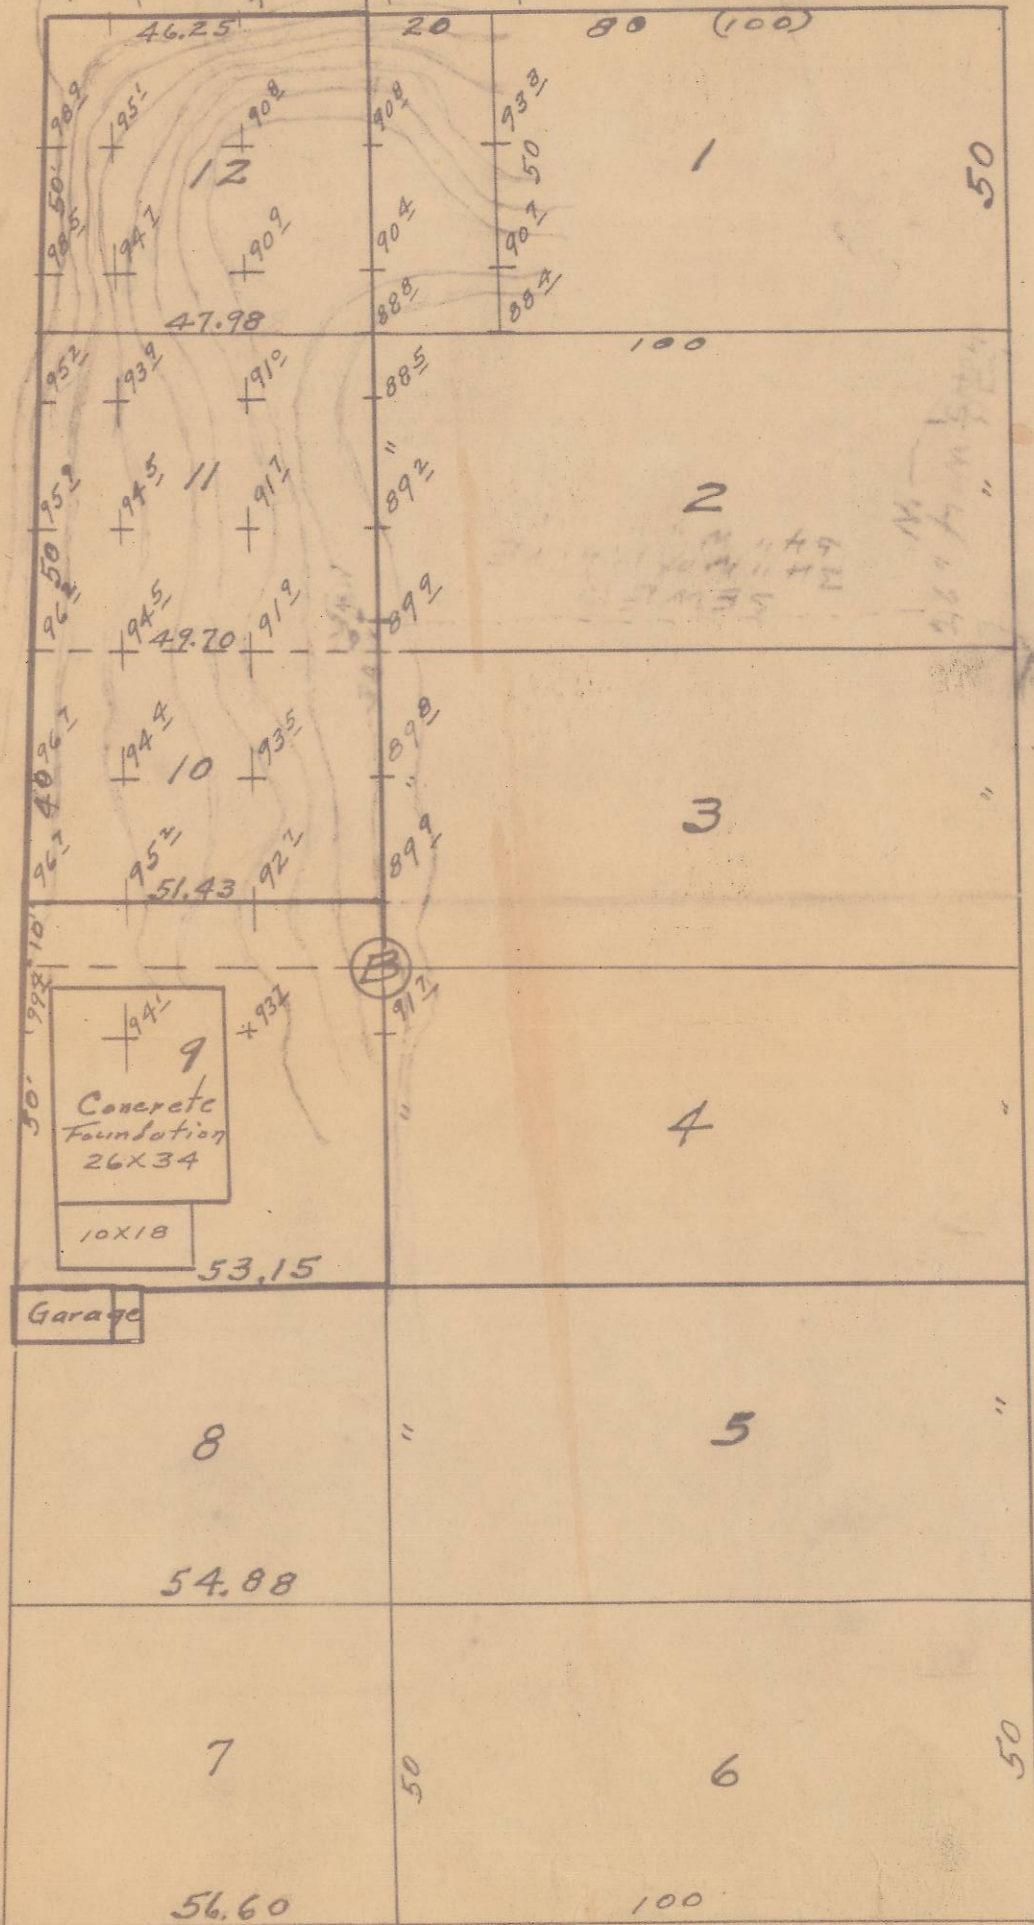 46.25 20 80 (100)
98⁹ 95¹ 90⁸ 90⁸ 93³
50' 12 50 1 50
98⁵ 94⁷ 90⁹ 90⁴ 90⁷
88⁸ 88⁴
47.98 100
95² 93⁹ 91⁰ 88⁵
11 " 2 "
95⁹ 94⁵ 91⁷ 89²
50
96² 94⁵ 91⁹ 89⁹
49.70
96⁷ 94⁴ 93⁵ 89⁸
40 10 " 3 "
96⁷ 95² 92⁷ 89⁹
51.43
10'
B
94¹ 93⁷ 91⁷
9
50' " 4 "
Concrete
Foundation
26X34
10X18
53.15
Garage
8 " 5 "
54.88
7 50 6 50
56.60 100